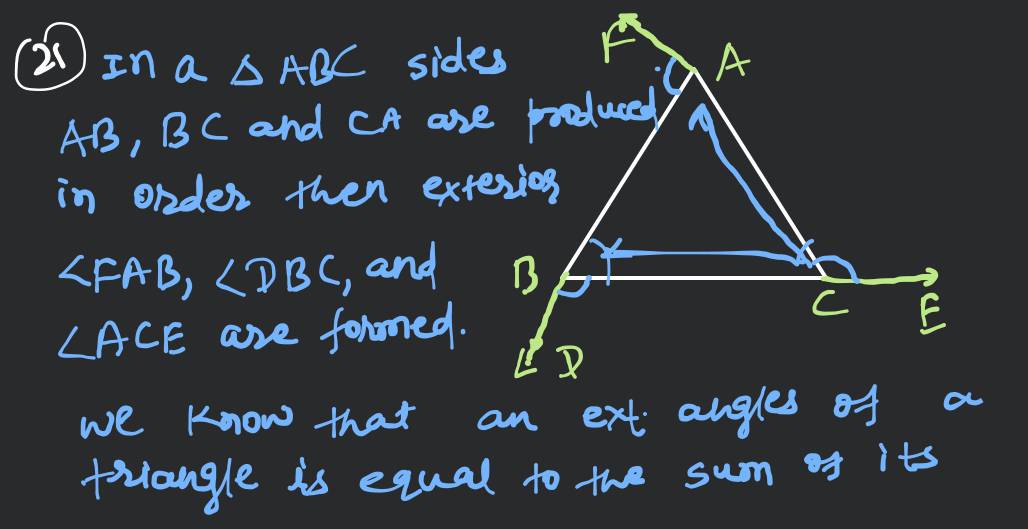 21 In a △ ABC sides
AB, BC and CA are produced
in order then exterior
∠FAB, ∠DBC, and
∠ACE are formed.
we know that an ext. angles of a
triangle is equal to the sum of its
F
A
B
C
E
D